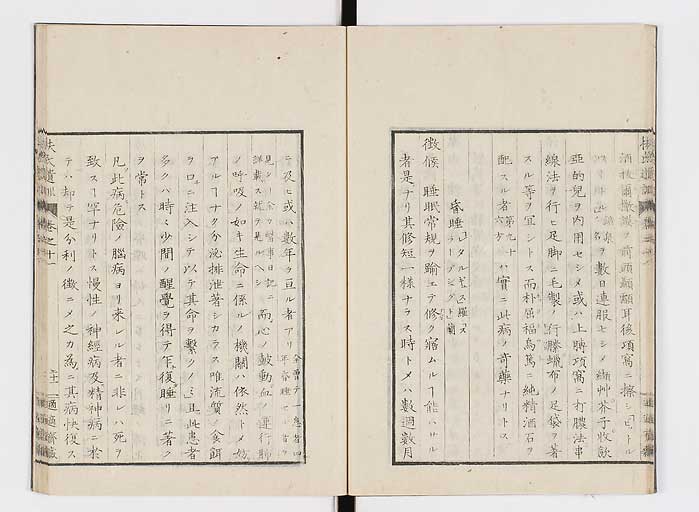 ヲ前頭顳顬耳後項窩ニ擦シ
ヲ數日連服セシメ纈艸芥子收飲
亜的兒ヲ内用セシメ或ハ上膊項窩ニ打膿法串
線法ヲ行ヒ足脚ニ毛製ノ行縢蠟布ノ足袋ヲ著
スル等ヲ宜シトス而朴屈福烏篤ニ純精酒石ヲ
配スル者第九十六方ハ實ニ此病ノ奇藥ナリトス
昏睡 羅 蘭
徴候 睡眠常規ヲ踰エテ修ク寤ムルヿ能ハサル
者是ナリ其修短一樣ナラス時トメハ數週數月
ニ及ヒ或ハ數年ヲ亘ル者アリ余曾テ一患者四年昏睡セシ者ヲ
見タリ余カ醫事日記ニ詳載ス就テ見ルヘシ而心ノ皷動血ノ運行肺
ノ呼吸ノ如キ生命ニ係ルノ機關ハ依然トメ妨
アルヿナク分泌排泄著シカラス唯流質ノ食餌
ヲ口ニ注入シテ以テ其命ヲ繋クノミ且此患者
多クハ時々少間ノ醒覺ヲ得テ乍復睡リニ著ク
ヲ常トス
凡此病危險ノ腦病ヨリ来レル者ニ非レハ死ヲ
致スヿ罕ナリトス慢性ノ神經病及精神病ニ於
テハ却テ是分利ノ徴ニメ之カ為ニ其病快復ス
扶氏遺訓 卷之十一 十二 適適齋藏